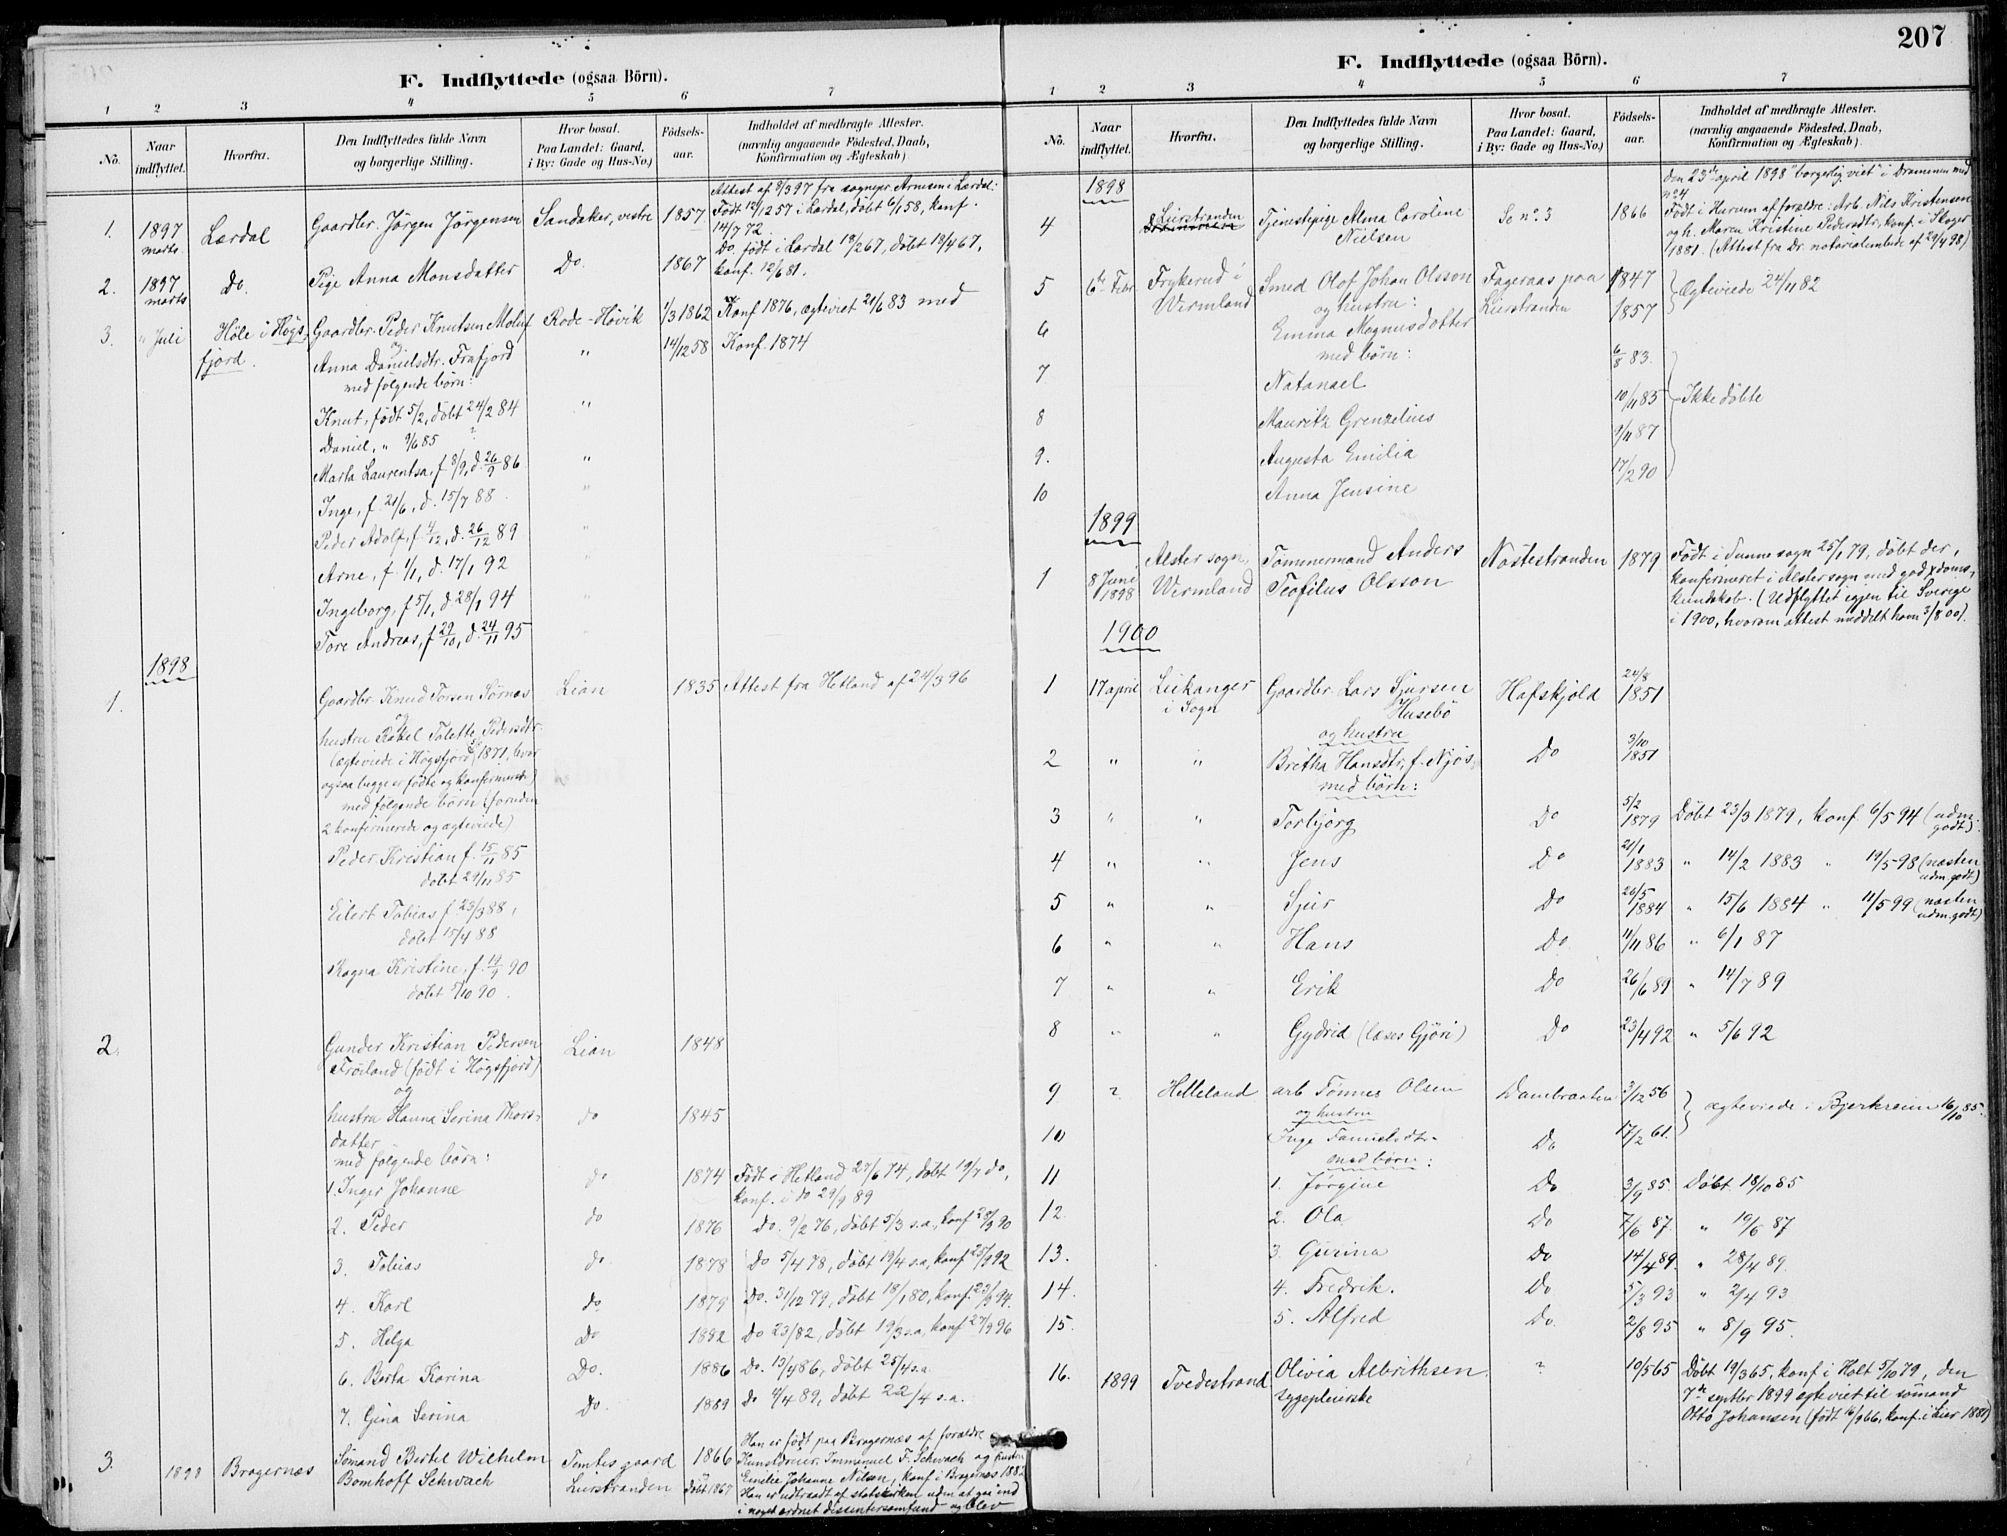 207
F. Indflyttede (ogsaa Börn).
1 2 3 4 5 6 7
No. Naar indflyttet. Hvorfra. Den Indflyttedes fulde Navn og borgerlige Stilling. Hvor bosat. Paa Landet: Gaard, i By: Gade og Hus-No.) Födsels-aar. Indholdet af medbragte Attester. (navnlig angaaende Födested, Daab, Konfirmation og Ægteskab)
Attest af 8/3 97 fra sognepr. Arnesen i Lærdal:
1. 1897 marts Lærdal Gaardbr. Jørgen Jørgensen Sandaker, vestre 1857 Født 12/12 57 i Lærdal, døbt 6/1 58, konf. 14/7 72
2. 1897 marts Do. Pige Anna Monsdatter Do. 1867 Do. født i Lærdal 19/2 67, døbt 19/4 67, konf. 12/6 81.
3. " Juli Høle i Høgsfjord. Gaardbr. Peder Knutsen Moluf Rode-Høvik 1/3 1862 Konf 1876, ægteviet 21/6 83 med
og
Anna Danielsdtr. Frafjord " 14/12 58 Konf. 1874
med følgende børn:
Knut, født 5/2, døbt 24/2 84 "
Daniel, " 9/6 85 ?
Marta Laurentsa, f 8/9, d. 26/9 86 "
Inge, f. 21/6, d. 15/7 88. "
Peder Adolf, f. 4/12, d. 26/12 89 "
Arne, f. 1/1, d. 17/1 92 "
Ingeborg, f 5/1, d 28/1 94 "
Tore Andreas, f 29/10, d. 24/11 95 "
1898
1. Gaardbr. Knud Torsen Sørnæs Lian 1835 Attest fra Hetland af 24/3 96
og
hustru Rakel Tolette Pedersdtr.
(ægteviede i Høgsfjord 1871, hvor
ogsaa begge er fødte og konfirmerede)
med følgende børn (foruden
2 konfirmerede og ægteviede)
Peder Kristian f. 15/11 85
døbt 29/11 85
Eilert Tobias f 23/3 88,
døbt 15/4 88
Ragna Kristine, f. 14/9 90
døbt 5/10 90.
2. Gunder Kristian Pedersen Lian 1848
Frøiland (født i Høgsfjord)
og
hustru Hanna Serina Thorsdatter do 1845
med følgende børn:
1. Inger Johanne do 1874 Født i Hetland 27/6 74, døbt 19/7 do, konf. i do 29/9 89
2. Peder do 1876 Do. 9/2 76, døbt 5/3 s.a, konf 28/9 90
3. Tobias do. 1878 Do 5/4 78, døbt 19/4 s.a, konf 25/9 92
4. Karl do 1879 Do. 31/12 79, døbt 18/1 80, konf. 23/9 94.
5. Helga Do 1882 Do 23/ 82, døbt 19/3 s.a, konf 27/9 96
6. Berta Karina Do. 1886 Do. 13/4 86, døbt 25/4 s.a.
7. Gina Serina Do. 1889 Do 4/4 89, døbt 22/4 s.a.
3. 1898 Bragernæs Sømand Bertel Wilhelm Bomhoff Schwach Tomtes gaard Lierstranden 1866 døbt 1867
Han er født paa Bragernæs af forældre
Immanuel F. Schwach og hustru
Emilie Johanne Nilsen, konf i Bragernæs 1882
Han er udtraadt af statskirken uden at gaa ind
i noget ordnet dissentersamfund og blev
F. Indflyttede (ogsaa Börn).
1 2 3 4 5 6 7
No. Naar indflyttet. Hvorfra. Den Indflyttedes fulde Navn og borgerlige Stilling. Hvor bosat. Paa Landet: Gaard, i By: Gade og Hus-No.) Födsels-aar. Indholdet af medbragte Attester. (navnlig angaaende Födested, Daab, Konfirmation og Ægteskab).
den 23de april 1898 borgerlig viet i Drammen med no 4
1898
4 Lierstranden Tjenestpige Alma Caroline Nielsen Se no. 3 1866
Født i Hurum af forældre: Arb. Nils Kristensen
og h. Maren Kristine Pedersdtr, konf. i Skoger
1881. (Attest fra Dr. notarialembede af 29/4 98)
5 6te Febr Frykerud i Wermland Smed Olof Johan Olsson Fageraas paa Lierstranden 1847 Ægteviede 24/11 82
og hustru:
6 Emma Magnusdotter 1857
med børn:
7 Natanael 6/8 83.
8 Mauritz Grenzelius 10/11 85 Ikke døbte
9. Augusta Emilia 9/11 87
10 Anna Jensine 17/2 90
1899
1 8 Juni 1898 Alster sogn, Wermland Tømmermand Anders Teofilus Olsson Nøstestranden 1879
Født i Tunne sogn 25/1 79, døbt der,
konfirmeret i Alster sogn med god kdoms-
kundskab. (Udflyttet igjen til Sverige
i 1900, hvorom attest meddelt ham 3/8 00).
1900
1 17 april Leikanger i Sogn Gaardbr. Lars Sjursen Husebö Hafskjold 24/8 1851
og hustru
2 " " Britha Hansdtr, f. Njøs Do 3/10 1851
med børn:
3 " " Torbjørg Do 5/2 1879 Døbt 23/3 1879, konf 6/5 94 (udm. godt).
4 " " Jens Do 21/1 1883 " 14/2 1883 " 19/5 98 (næsten udm. godt)
5 " " Sjur Do 26/5 1884 " 15/6 1884 " 11/5 99 (næsten udm. godt)
6 " " Hans Do. 11/11 86 " 6/1 87
7 " " Erik Do 26/6 89 " 14/7 89
8 " " Gydrid (læses Gjøri) Do 23/4 92 " 5/6 92
9 ? Helleland arb Tønnes Olsen Dambraaten 3/12 56 ægteviede i Bjerkreim 16/10 85.
og hustru
10 Inge Do 17/2 61.
med børn:
11 1. Jørgine Do 3/9 85. Døbt 18/10 85
12. 2. Ola Do 7/6 87. " 19/6 87
13. 3. Gurina Do 14/4 89. " 28/4 89.
14. 4. Fredrik. Do 5/3 93 " 2/4 93
15. 5. Alfred Do. 2/8 95 " 8/9 95.
16. 1899 Tvedestrand Olivia Albrithsen sygepleierske ? 10/5 65
Døbt 19/3 65, konf i Holt 5/10 79, den
7de septbr 1899 ægteviet til sømand
Otto Johansen (født 16/9 66, konf. i Lier 1881)